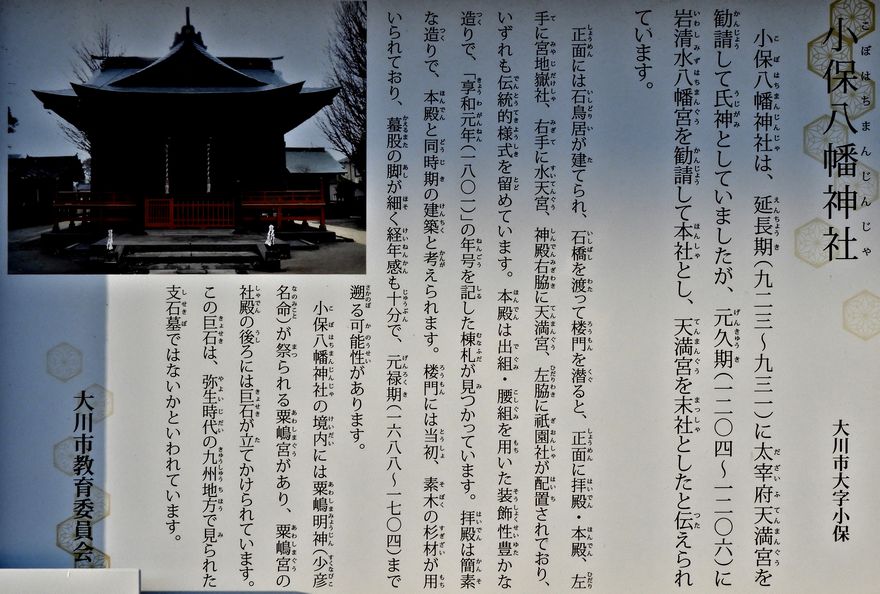 小保八幡神社
こぼはちまんじんじゃ
大川市大字小保
小保八幡神社は、延長期(九二三〜九三一)に太宰府天満宮を
勧請して氏神としていましたが、元久期(一二〇四〜一二〇六)に
岩清水八幡宮を勧請して本社とし、天満宮を末社としたと伝えられ
ています。
正面には石鳥居が建てられ、石橋を渡って楼門を潜ると、正面に拝殿・本殿、左
手に宮地嶽社、右手に水天宮、神殿右脇に天満宮、左脇に祇園社が配置されており、
いずれも伝統的様式を留めています。本殿は出組・腰組を用いた装飾性豊かな
造りで、「享和元年(一八〇一)」の年号を記した棟札が見つかっています。拝殿は簡素
な造りで、本殿と同時期の建築と考えられます。楼門には当初、素木の杉材が用
いられており、蟇股の脚が細く経年感も十分で、元禄期(一六八八〜一七〇四)まで
遡る可能性があります。
小保八幡神社の境内には粟嶋明神(少彦
名命)が祭られる粟嶋宮があり、粟嶋宮の
社殿の後ろには巨石が立てかけられています。
この巨石は、弥生時代の九州地方で見られた
支石墓ではないかといわれています。
大川市教育委員会